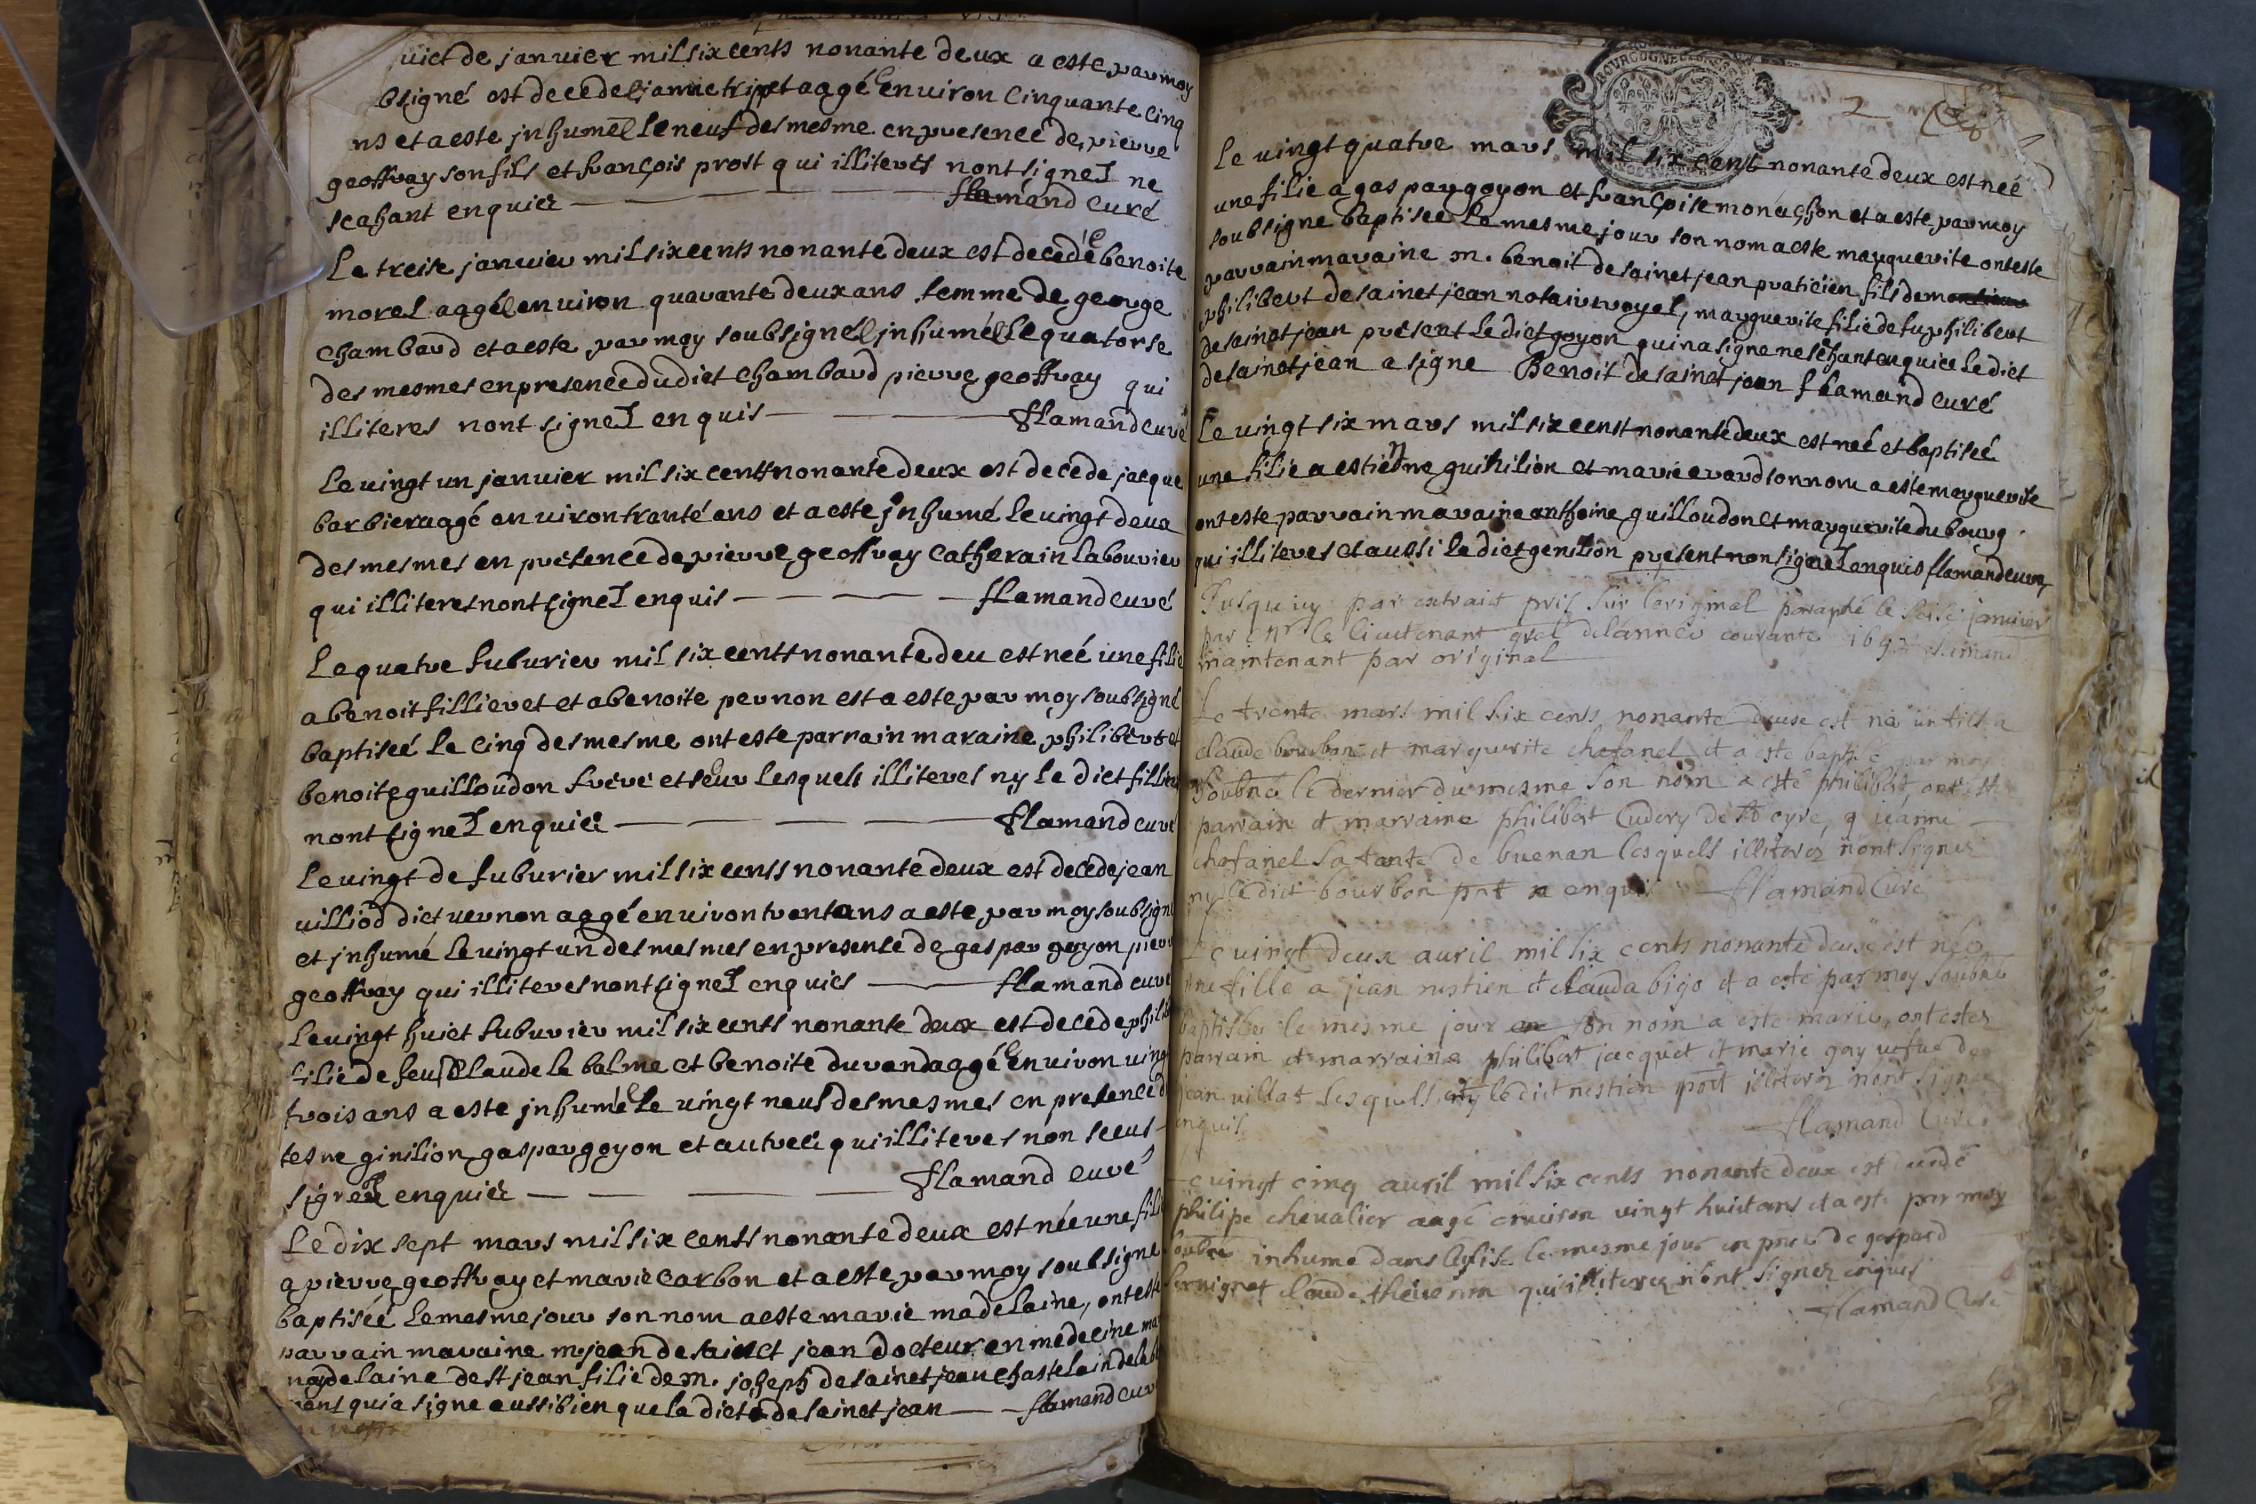 uict de janvier mil six cents nonante deux a este par moy
bsigné est decedeé janne tripet aagéé environ cinquante cinq
ns et a este jnhumeé le neuf des mesme en presence de pierre
geoffray son fils et françois prost qui illiteres nont signez ne
scahant enquier flamand curé
Le treise janvier mil six cents nonante deux est decedéé benoite
morel aagéé environ quarante deux ans femme de george
chambard et a este par moy soubsigné jnhuméé le quatorse
des mesmes en presence du dict chambard pierre geoffray qui
illiteres nont signez enquis flamand curé
Le vingt un janvier mil six cents nonante deux est decede jacque
barbier aagé environ tranté ans et a este jnhumé le vingt deux
des mesmes en présence de pierre geoffray catherain labourier
qui illiteres nont signez enquis flamand curé
Le quatre feburier mil six cents nonante deu est neé une filie
a benoit fillieret et a benoite pernon est a este par moy soubsigné
baptiseé le cinq des mesme ont este parrain maraine philibert et
benoite guilloudon frere et seur lesquels illiteres ny le dict fillier
nont signez enquier flamand curé
Le vingt de feburier mil six cents nonante deux est decede jean
villiod dict vernon aagé environ trentans a este par moy soubsigné
et jnhumé le vingt un des mesmes en presense de gaspar goyon pierre
geoffray qui illiteres nont signez enquies flamand curé
Le vingt huict feburier mil six cents nonante deux est decede phili
filie de feu Claude la balme et benoite durand aagéé environ ving
trois ans a este jnhuméé le vingt neuf des mesmes en presence d
tesne ginilion gaspar goyon et autres qui illiteres non sceus
signez enquier flamand curé
Le dix sept mars mil six cents nonante deux est née une filie
a pierre geoffray et marie carbon et a este par moy soubsigne
baptiséé le mesme jour son nom a este marie madelaine, ont este
parrain maraine m. jean de sainct jean docteur en medecine
magdelaine de st jean filie de m. joseph de sainct jean chastelain de la
qui a signe aussi bien que la dicte de sainct jean flamand curé
2
Le vingt quatre mars mil six cent nonante deux est neé
une filie a gaspar goyon et françoise monachon et a este par moy
soubsigne baptiseé le mesme jour son nom a este marguerite ont este
parrain maraine m. benoit de sainct jean praticien fils de
philibert de sainct jean notaire royel, marguerite filie de fu philibert
de sainct jean présent le dict goyon qui na signe ne schant enquice le dict
de sainct jean a signe Benoit de sainct jean flamand curé
Le vingt six mars mil six censt nonante deux est neé et baptiseé
une filie a estienne guinilion et marie evard son nom a este marguerite
ont este parrain maraine anthoine guilloudon et marguerite du bourg
qui illiteres et aussi le dict genilion présent non signez enquis flamand cure
Jusqu icy par extraict pris sur loriginal paraphé le seise janvier
par Mr le lieutenant gral de lannée courante 1692 flamand
maintenant par original
Le trente mars mil six cents nonante deuse est né un fils a
claude bourbon et marguerite chofanel et a este baptisé par moy
soubné le dernier du mesme son nom a esté philibert, ont este
parrain et marraine philibert Cudery de St cyre, jeanne
chofanel sa tante de buenan lesquels illiterez nont signez
ny le dict bourbon pnt enquis flamand Curé
Le vingt deux auril mil six cents nonante deuse est née
une fille a jean nestien et clauda bigo et a esté par moy soubné
baptisée le mesme jour son nom a este marie, ont estez
parrain et marraine philibert jacquet et marie gay vefue de
jean villat lesquels ny le dict nestien pnt illiterez nont signez
enquis flamand Curé
Le vingt cinq auril mil six cents nonante deux est decedé
philipe chevalier aagé environ vingt huict ans et a este par moy
soubné inhumé dans leglise le mesme jour en pnce de gaspard
claude thevenin qui illiterez nont signez enquis
flamand Curé